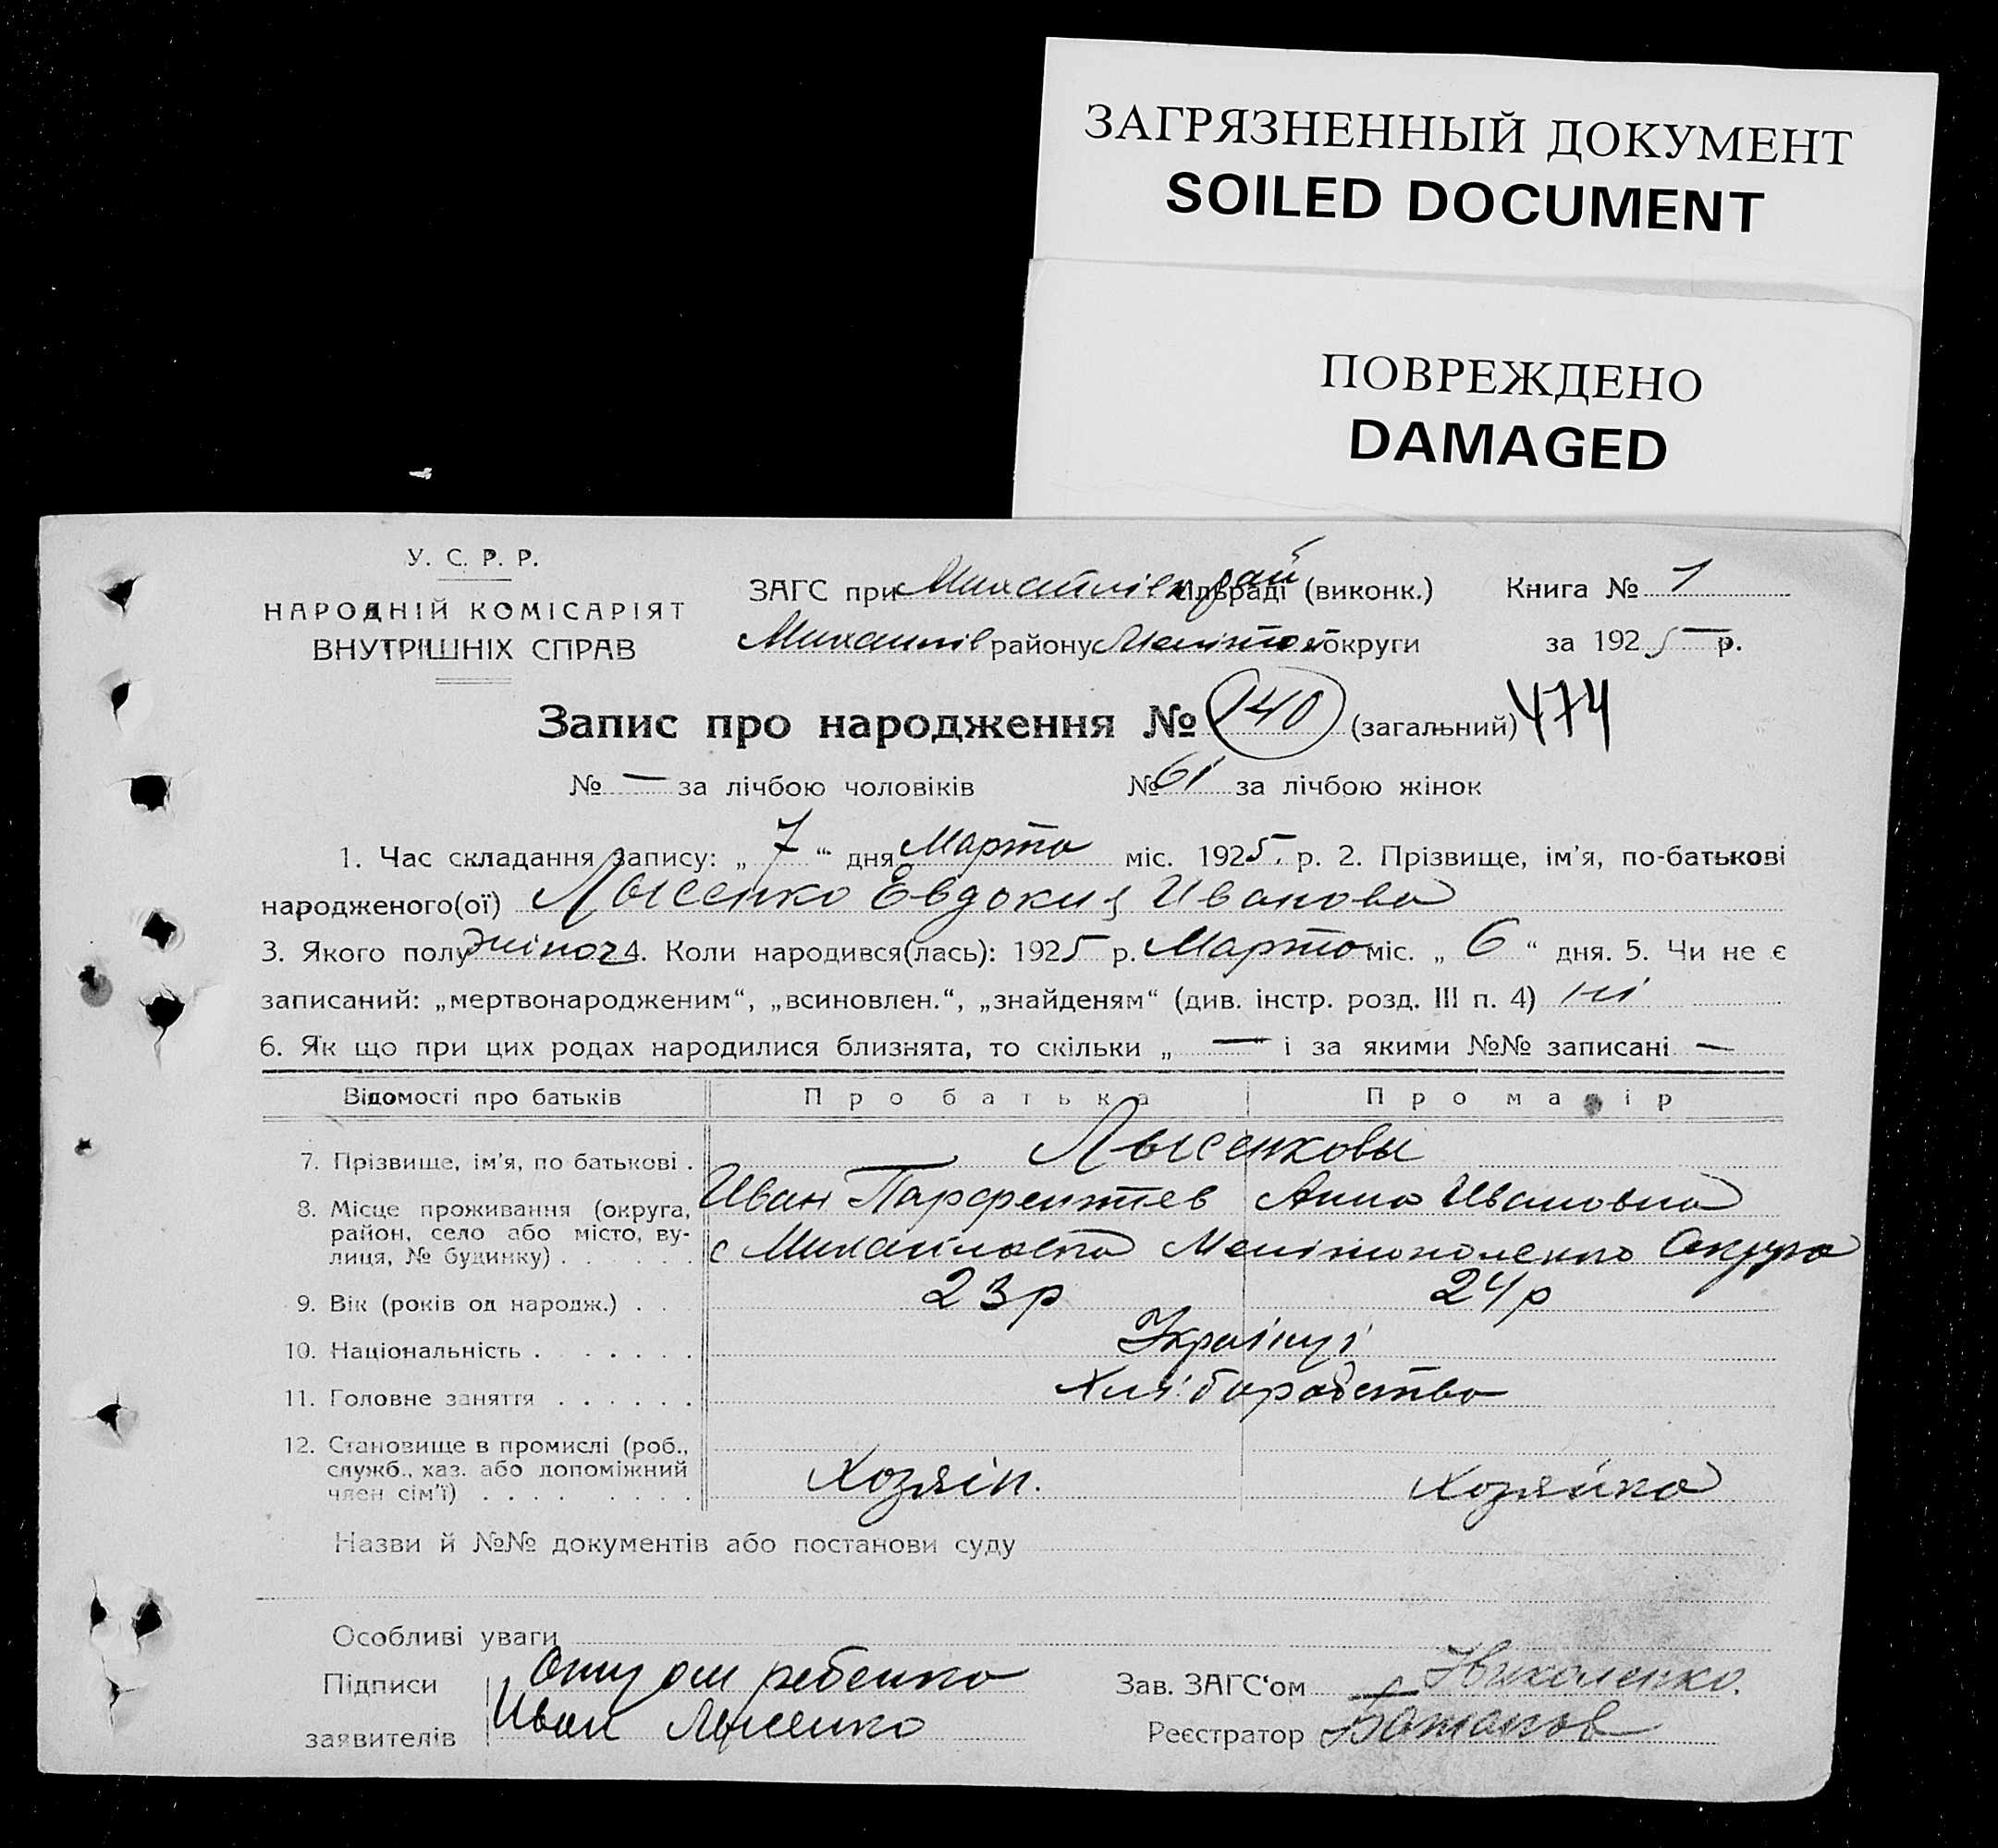 ЗАГРЯЗНЕННЫЙ ДОКУМЕНТ
SOILED DOCUMENT
ПОВРЕЖДЕНО
DAMAGED
У. С. Р. Р.
НАРОДНІЙ КОМІСАРІЯТ
ВНУТРІШНІХ СПРАВ
ЗАГС при Михайлівк рай сільраді (виконк.)
Михайлів району Меліто округи
Книга № 1
за 1925 р.
Запис про народження № 140 (загальний) 474
№ — за лічбою чоловіків № 61 за лічбою жінок
1. Час складання запису: „ 7 “ дня Марта міс. 1925. р. 2. Прізвище, ім’я, по-батькові
народженого(ої) Лысенко Евдокия Иванова
3. Якого полу жіноч 4. Коли народився(лась): 1925 р. Марта міс. „ 6 “ дня. 5. Чи не є
записаний: „мертвонародженим“, „всиновлен.“, „знайденям“ (див. інстр. розд. III п. 4) ні
6. Як що при цих родах народилися близнята, то скільки „ — “ і за якими №№ записані —
Відомості про батьків Про батька Про матір
7. Прізвище, ім’я, по батькові . Лысенковы
Иван Парфентиев Анна Ивановна
8. Місце проживання (округа,
район, село або місто, ву-
лиця, № будинку) . . . . . . с Михайловка Мелітопольска Округа
9. Вік (років од народж.) . . 23 р 24 р
10. Національність . . . . . . . Українці
11. Головне заняття . . . . . . Хліборобство
12. Становище в промислі (роб.,
служб., хаз. або допоміжний
член сім’ї) . . . . . . . . Хозяін. Хозяйка
Назви й №№ документів або постанови суду
Особливі уваги
Підписи Отец ребенка
заявителів Иван Лысенко
Зав. ЗАГС‘ом Николенко.
Реєстратор